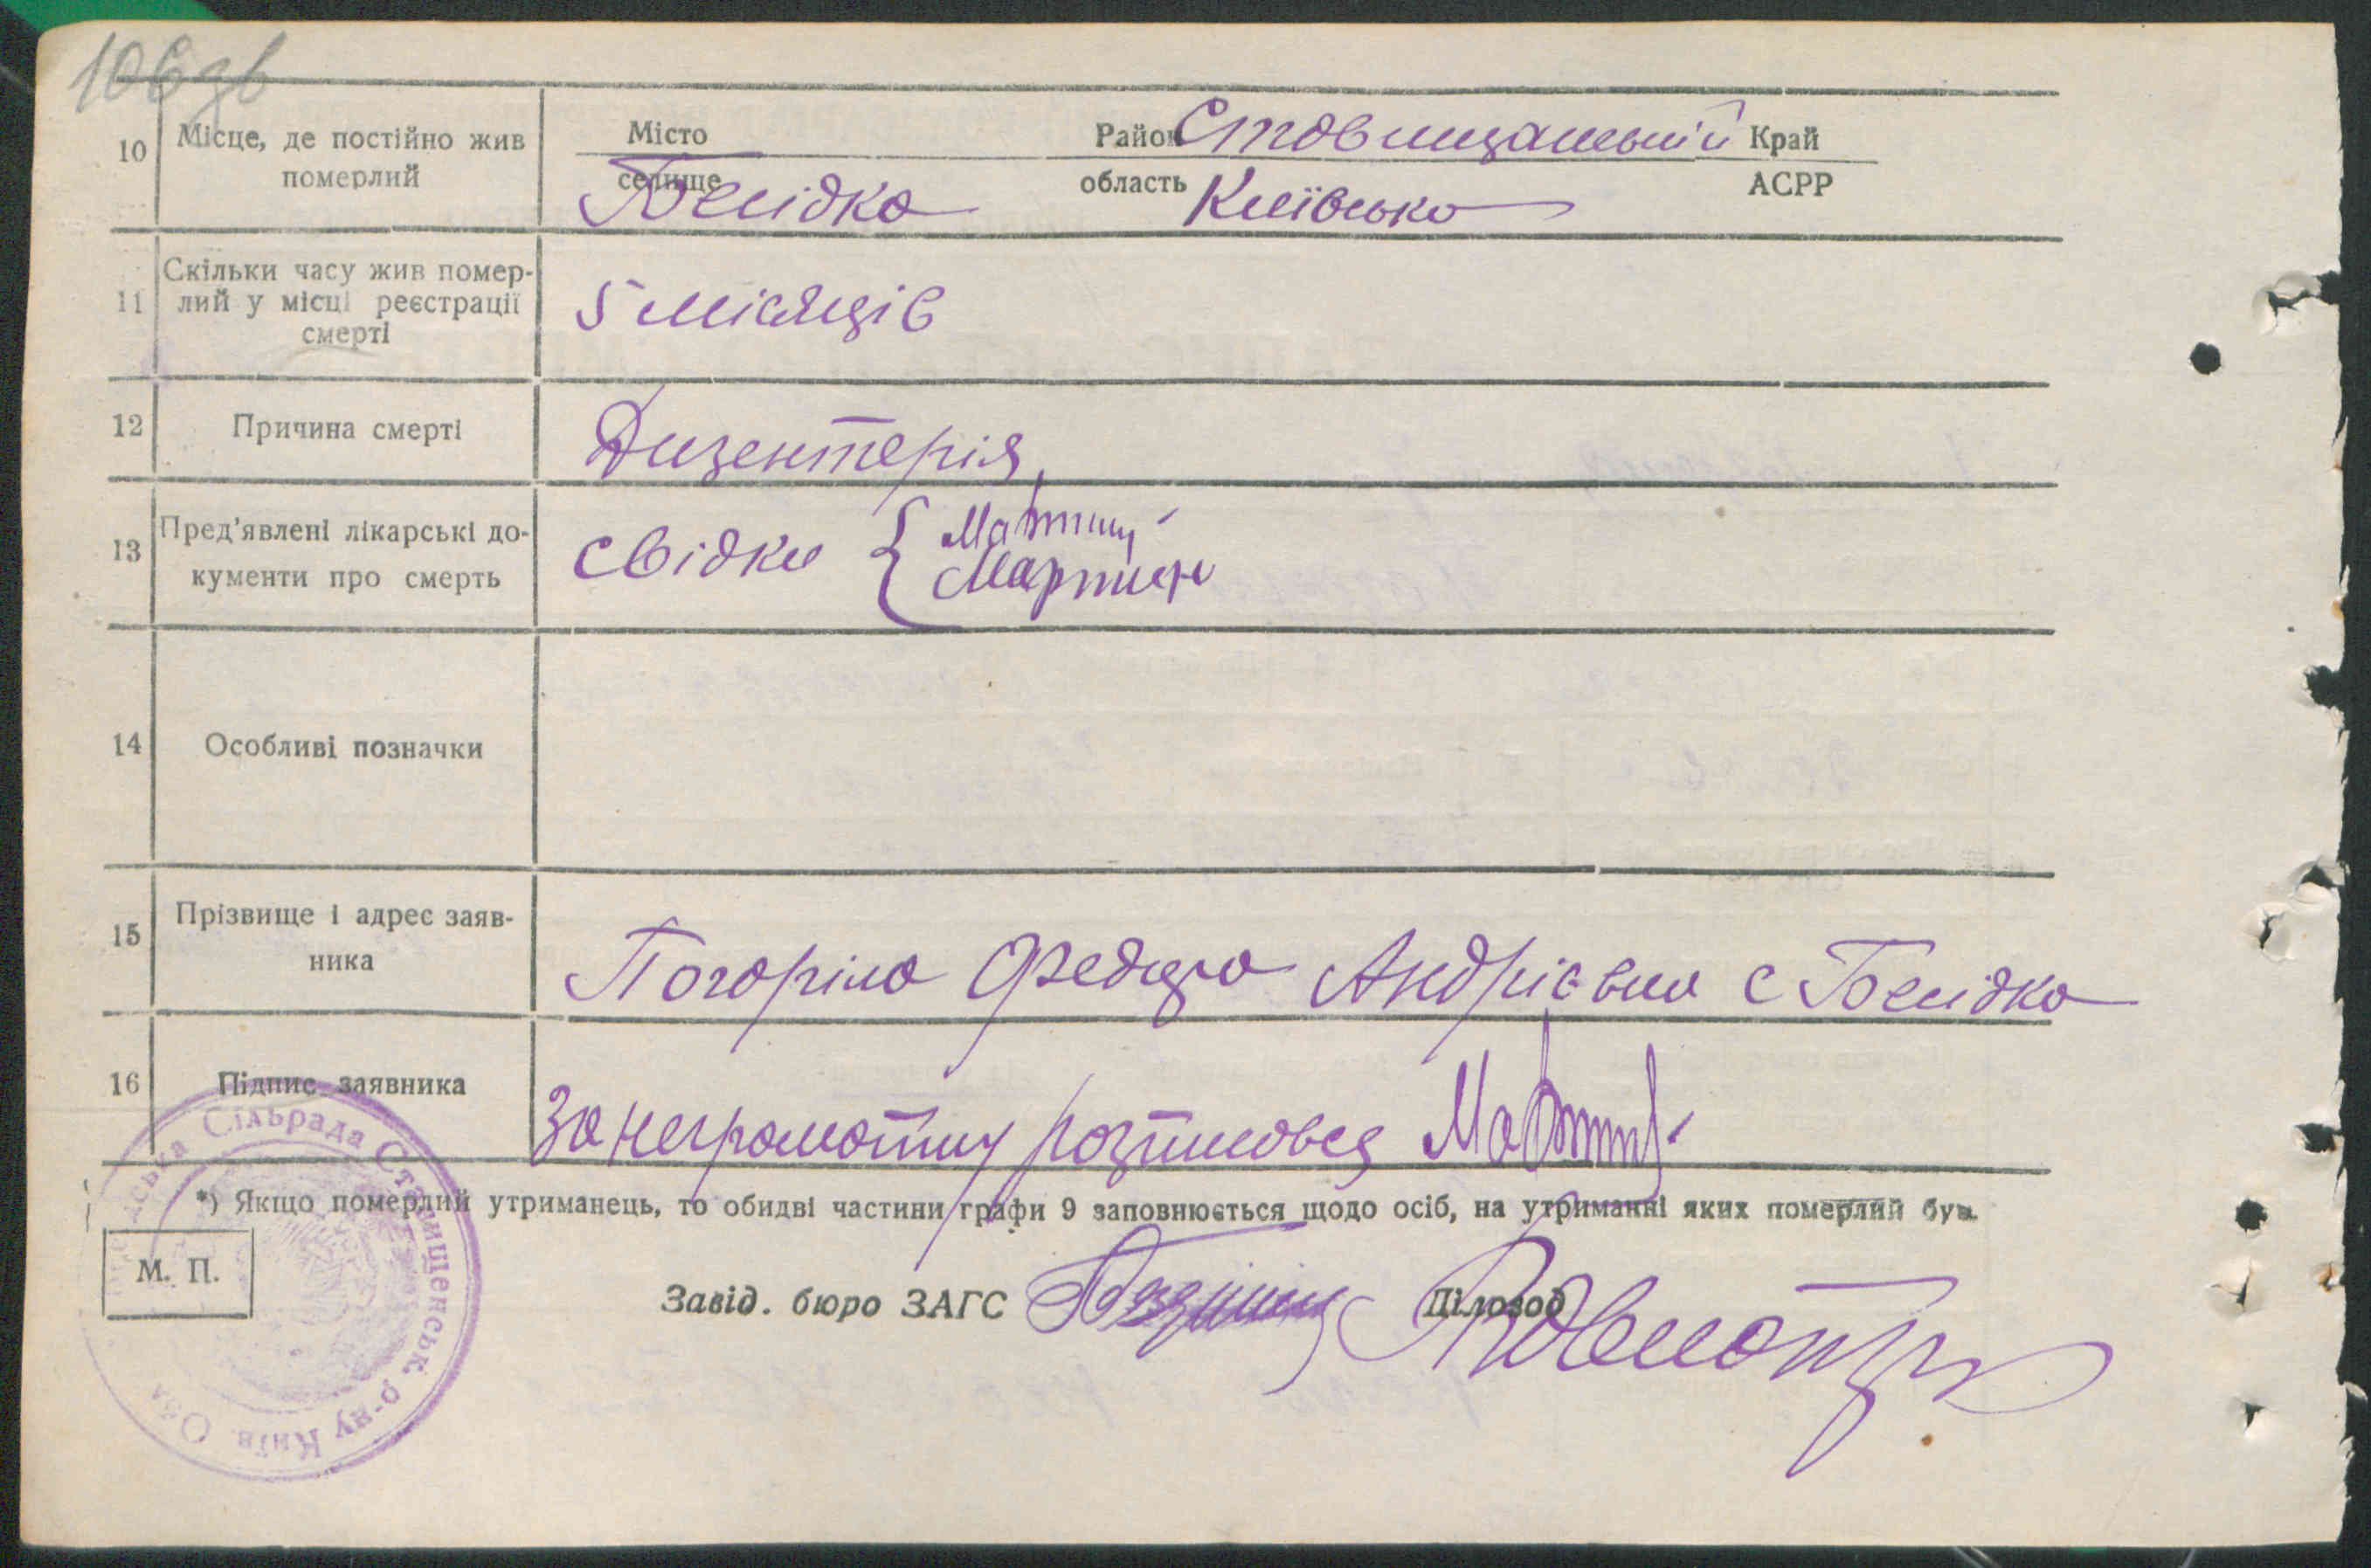 106зв
10 Місце, де постійно жив померлий
Місто
селище Бесідка
Район Ставищанський Край
область Київська АСРР
11 Скільки часу жив помер-
лий у місці реєстрації
смерті
5 місяців
12 Причина смерті
Дизентерія
13 Пред'явлені лікарські до-
кументи про смерть
свідки {
14 Особливі позначки
15 Прізвище і адрес заяв-
ника
Погоріла Андрієвна с Бесідка
16 Підпис заявника
За неграмотну
*) Якщо померлий утриманець, то обидві частини графи 9 заповнюється щодо осіб, на утриманні яких померлий був.
М. П.
Завід. бюро ЗАГС
Діловод
Сільрада Ставищенськ. р-ну Київ. Обл.